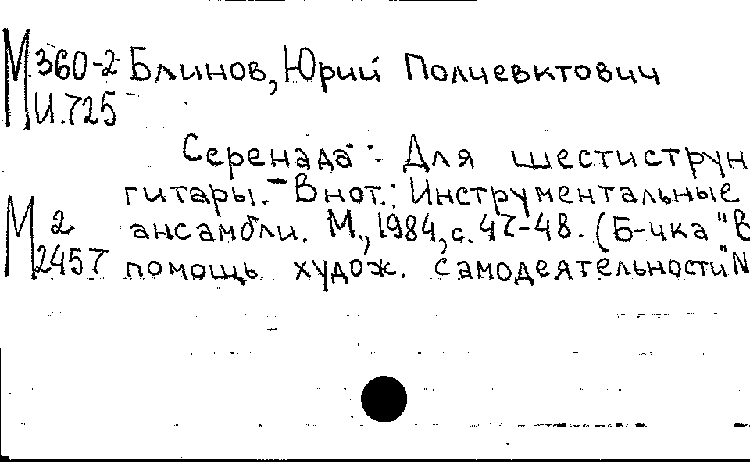 М 360-2 Блинов, Юрий Полиевктович
И.725
Серенада: Для шестиструн
гитары. - В нот.: Инструментальные
М 2 ансамбли. М., 1984, с. 47-48. (Б-чка "В
2457 помощь худож. самодеятельности" N